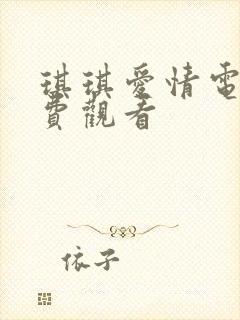 琪琪愛情電
費觀看
依子